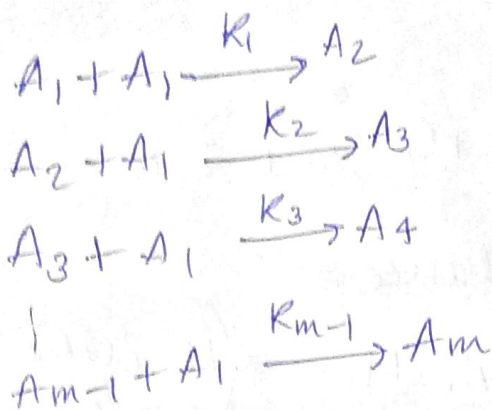 A₁ + A₁ —K₁→ A₂
A₂ + A₁ —K₂→ A₃
A₃ + A₁ —K₃→ A₄
|
Aₘ₋₁ + A₁ —Kₘ₋₁→ Aₘ